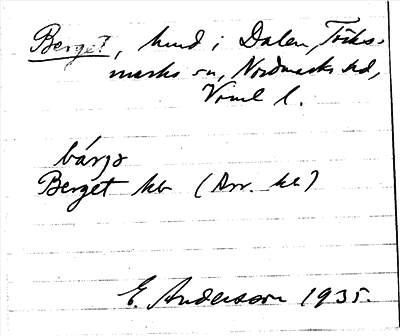 Berget, hmd i Dalen, Töcks-
marks sn, Nordmarks hd,
Vrml l.
bárjə
Berget hb (Arr. kl)
E. Andersson 1935.